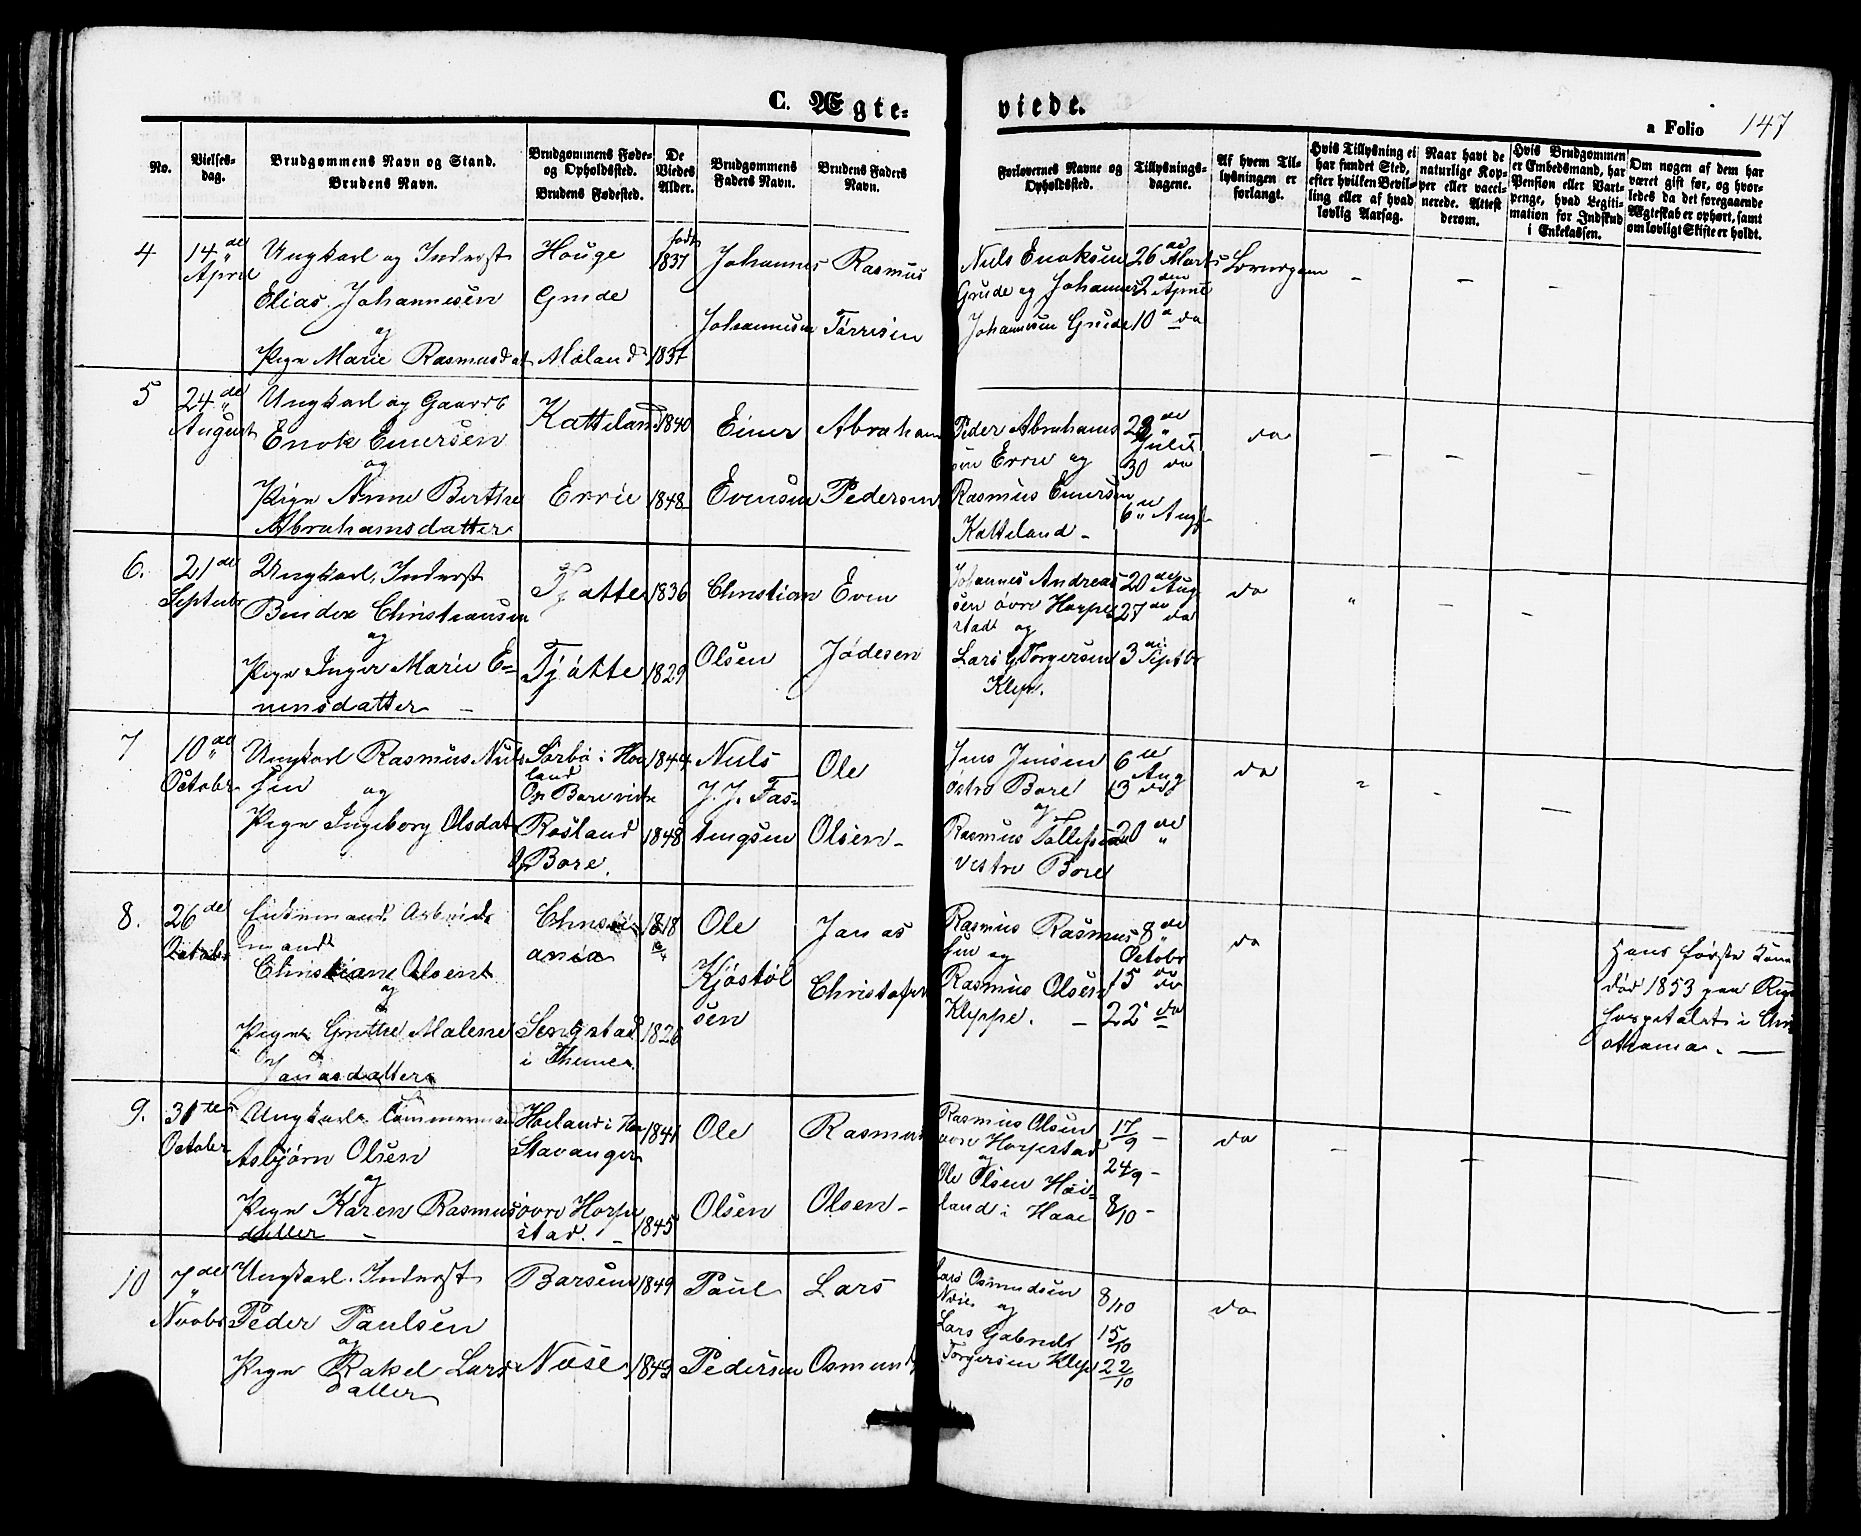 C. Ægte-
viede.
a Folio 147
No.
Vielses-
dag.
Brudgommens Navn og Stand.
Brudens Navn.
Brudgommens Føde-
og Opholdssted.
Brudens Fødested.
De
Viedes
Alder.
Brudgommens
Faders Navn.
Brudens Faders
Navn.
Forlovernes Navne og
Opholdssted.
Tillysnings-
dagene.
Af hvem Til-
lysningen er
forlangt.
Hvis Tillysning ei
har fundet Sted,
efter hvilken Bevil-
ling eller af hvad
lovlig Aarsag.
Naar havt de
naturlige Kop-
per eller vacci-
nerede. Attest
derom.
Hvis Brudgommen
er Embedsmand, har
Pension eller Vart-
penge, hvad Legiti-
mation for Indskud
i Enkekassen.
Om nogen af dem har
været gift før, og hvor-
ledes da det foregaaende
Ægteskab er ophørt, samt
om lovligt Skifte er holdt.
4
14de
April
Ungkarl og Inderst
Elias Johannesen
og
Pige Marie Rasmusdat
Houge
Grude
Mæland
født
1837
1837
Johannes
Johannesen
Rasmus
Tørresen
Niels Enoksen
Grude og Johannes
Johannesen Grude
26de Marts
2den April
10de do
5
24de
August
Ungkarl og Gaardb
Enok Einersen
og
Pige Anne Berthe
Abrahamsdatter
Katteland
Errie
1840
1848
Einer
Evensen
Abraham
Pedersen
Peder Abrahams
sen Errie og
Rasmus Einersen
Katteland -
23de
Juli
30 do
6te Augst
do
6.
21de
Septbr
Ungkarl, Inderst
Christiansen
og
Pige Inger Marie E-
vensdatter -
Tjøtte
Tjøtte
1836
1829
Christian
Olsen
Even
Jødesen
Johannes Andreas
sen øvre Horpe
stad og
Lars G Torgersen
Klep.
20de Aug
27de do
3die Septbr
do
7
10de
October
Ungkarl Rasmus Niels
sen og
Pige Ingeborg Olsdat
Sørbø i Hou
land
Op Bore
Rosland
Op Bore.
1844
1848
Niels
J. J. Fas-
tingsen
Ole
Olsen -
Jens Jensen
østre Bore
og
Rasmus Tollefsen
vestre Bore
6te
Aug
13 do
20de "
do
8.
26de
October
Enkemand Arbeids
mand
Christian Olsen
og
Pige Grethe Malene
Janasdatter
Christi-
ania
Sengstad
i Thime
1818
1826
Ole
Kjøstøl
sen
Janas
Christofer
Rasmus Rasmus
sen og
Rasmus Olsen
Kleppe. -
8de
Octobr
15 do
22 do
do
Hans første Kone
død 1853 paa Rigs
hospitalet i Chri
stiania. -
9.
31te
October
Ungkarl Tømmermand
Asbjørn Olsen
og
Pige Karen Rasmus
datter -
Høiland i Haa
Stavanger
øvre Horpe
stad. -
1841
1845
Ole
Olsen
Rasmus
Olsen -
Rasmus Olsen
øvre Horpestad
og
Ole Olsen Høi-
land i Haae
17/9 -
24/9 -
8/10 -
do
10
7de
Novbr
Ungkarl. Inderst
Peder Paulsen
og
Pige Rakel Lars
datter
Barsem
Næse
1849
1849
Paul
Pedersen
Lars
Osmunds
Lars Osmundsen
Næse og
Lars Gabriel
Torgersen Klep
8/10
15/10
22/10
do